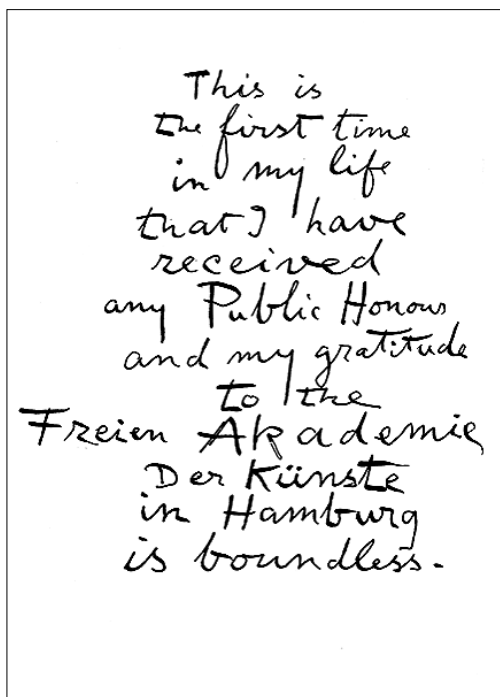 This is
the first time
in my life
that I have
received
any Public Honour
and my gratitude
to the
Freien Akademie
Der Künste
in Hamburg
is boundless.